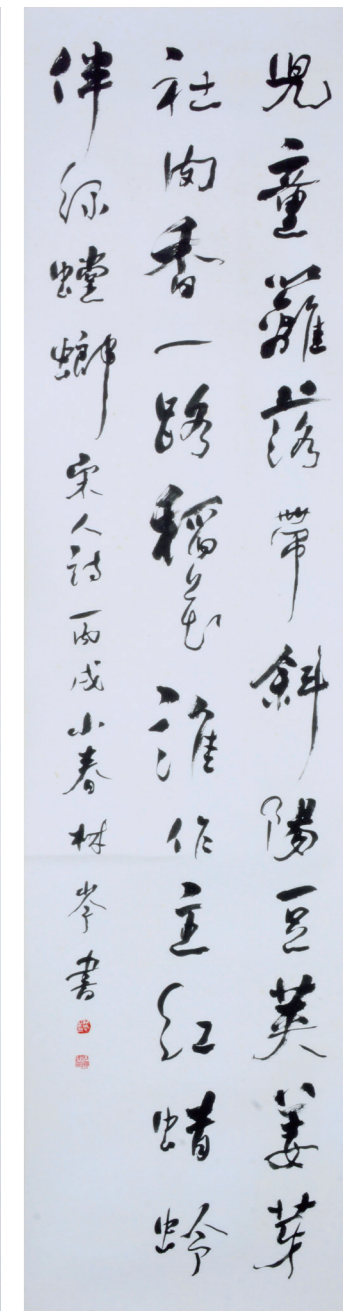 兒童籬落帶斜陽豆莢姜芽
社肉香一路稻花誰作主紅蜻蛉
伴綠螳螂宋人詩丙戌小春林岑書